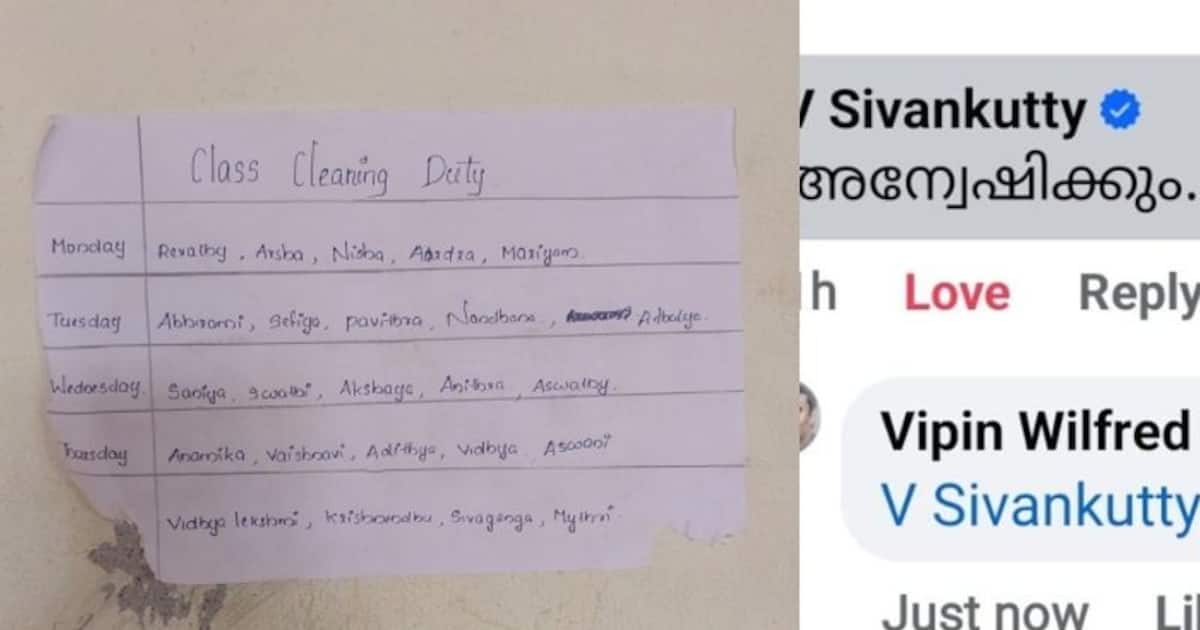 Class Cleaning Duty
Monday Revathy, Arsha, Nisha, Aardra, Mariyam.
Tuesday Abhirami, pavithra, Nandhana,
Wednesday. Saniya, Swathi, Akshaya, Anithra, Aswathy.
Thursday Anamika, Vaishnavi, Adithya, Vidhya, Aswani
Vidhya lekshmi, Krishnendhu, Sivaganga, Mythri.
V Sivankutty
അന്വേഷിക്കും.
h Love Reply
Vipin Wilfred
V Sivankutty
Just now Li